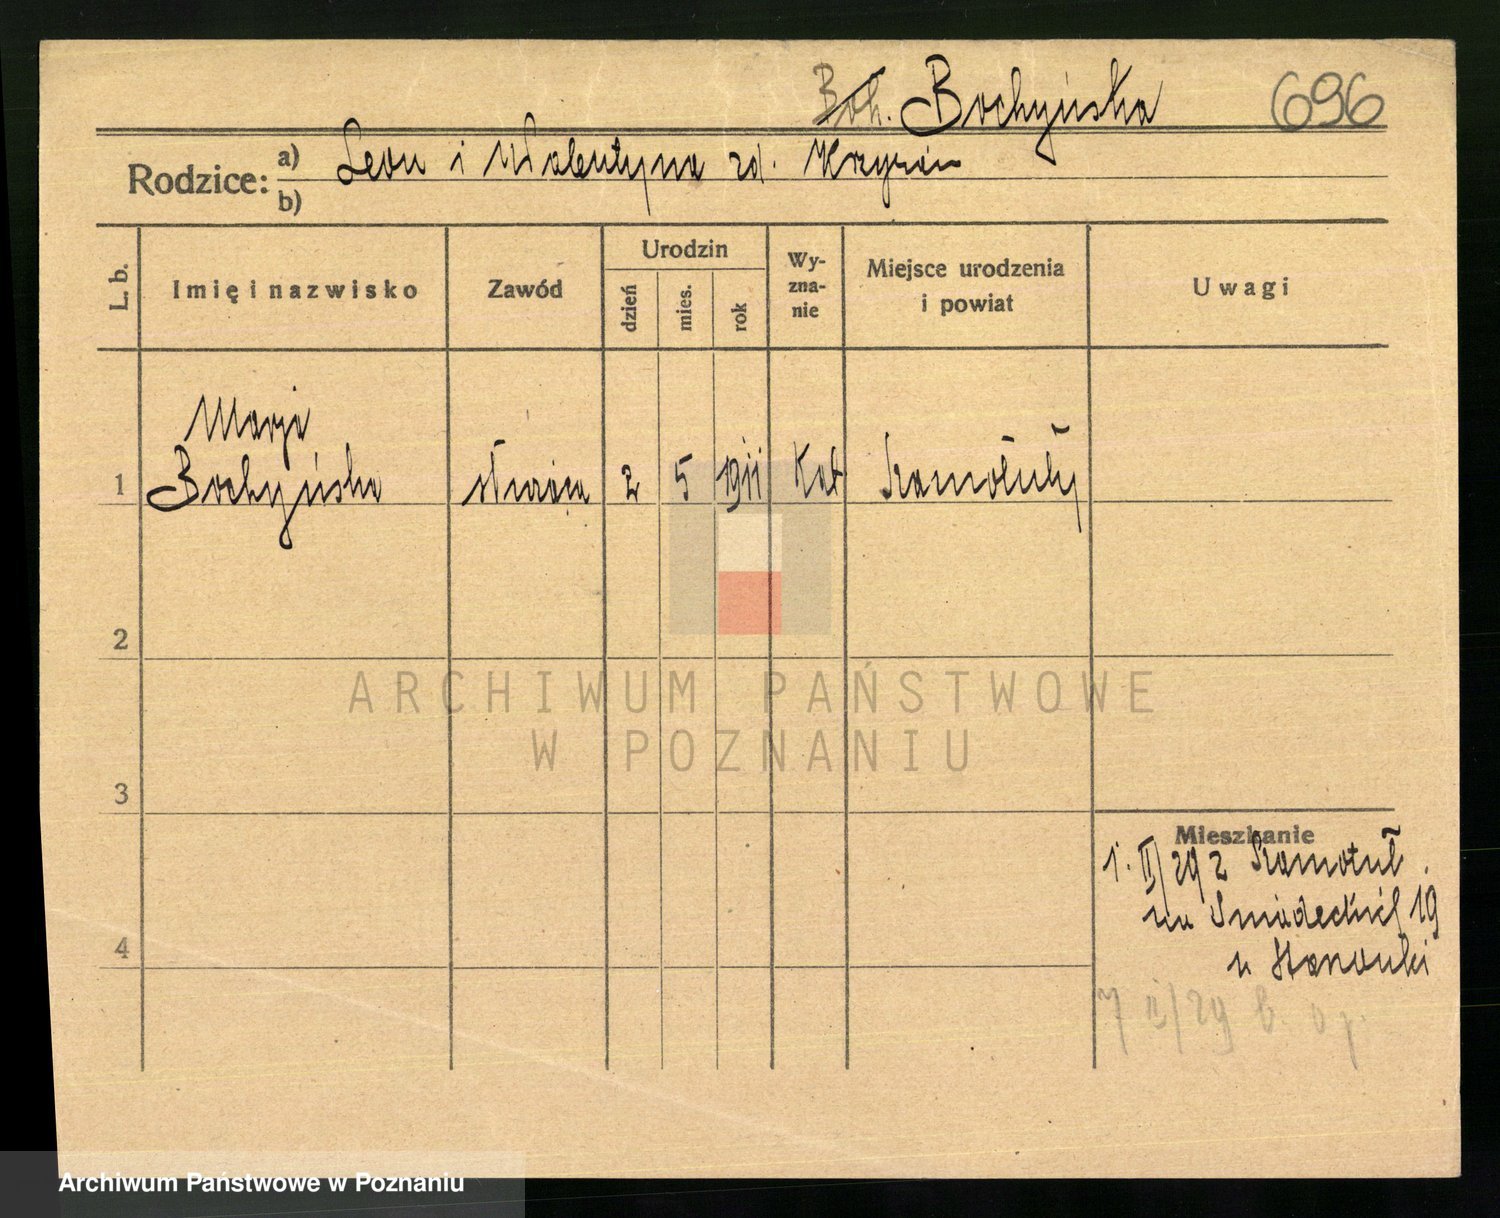 Boh. Bochyńska 696
Rodzice: a) Leon i Walentyna zd.
b)
L. b. Imię i nazwisko Zawód Urodzin dzień mies. rok Wyznanie Miejsce urodzenia i powiat Uwagi
Marja
1 Bochyńska służąca 2 5 1911 Kat Szamotuły
2
ARCHIWUM PAŃSTWOWE
W POZNANIU
3
Mieszkanie
1. II/29 z Szamotuł
na Śniadeckich 19
u
4
7 II/29 b.
Archiwum Państwowe w Poznaniu